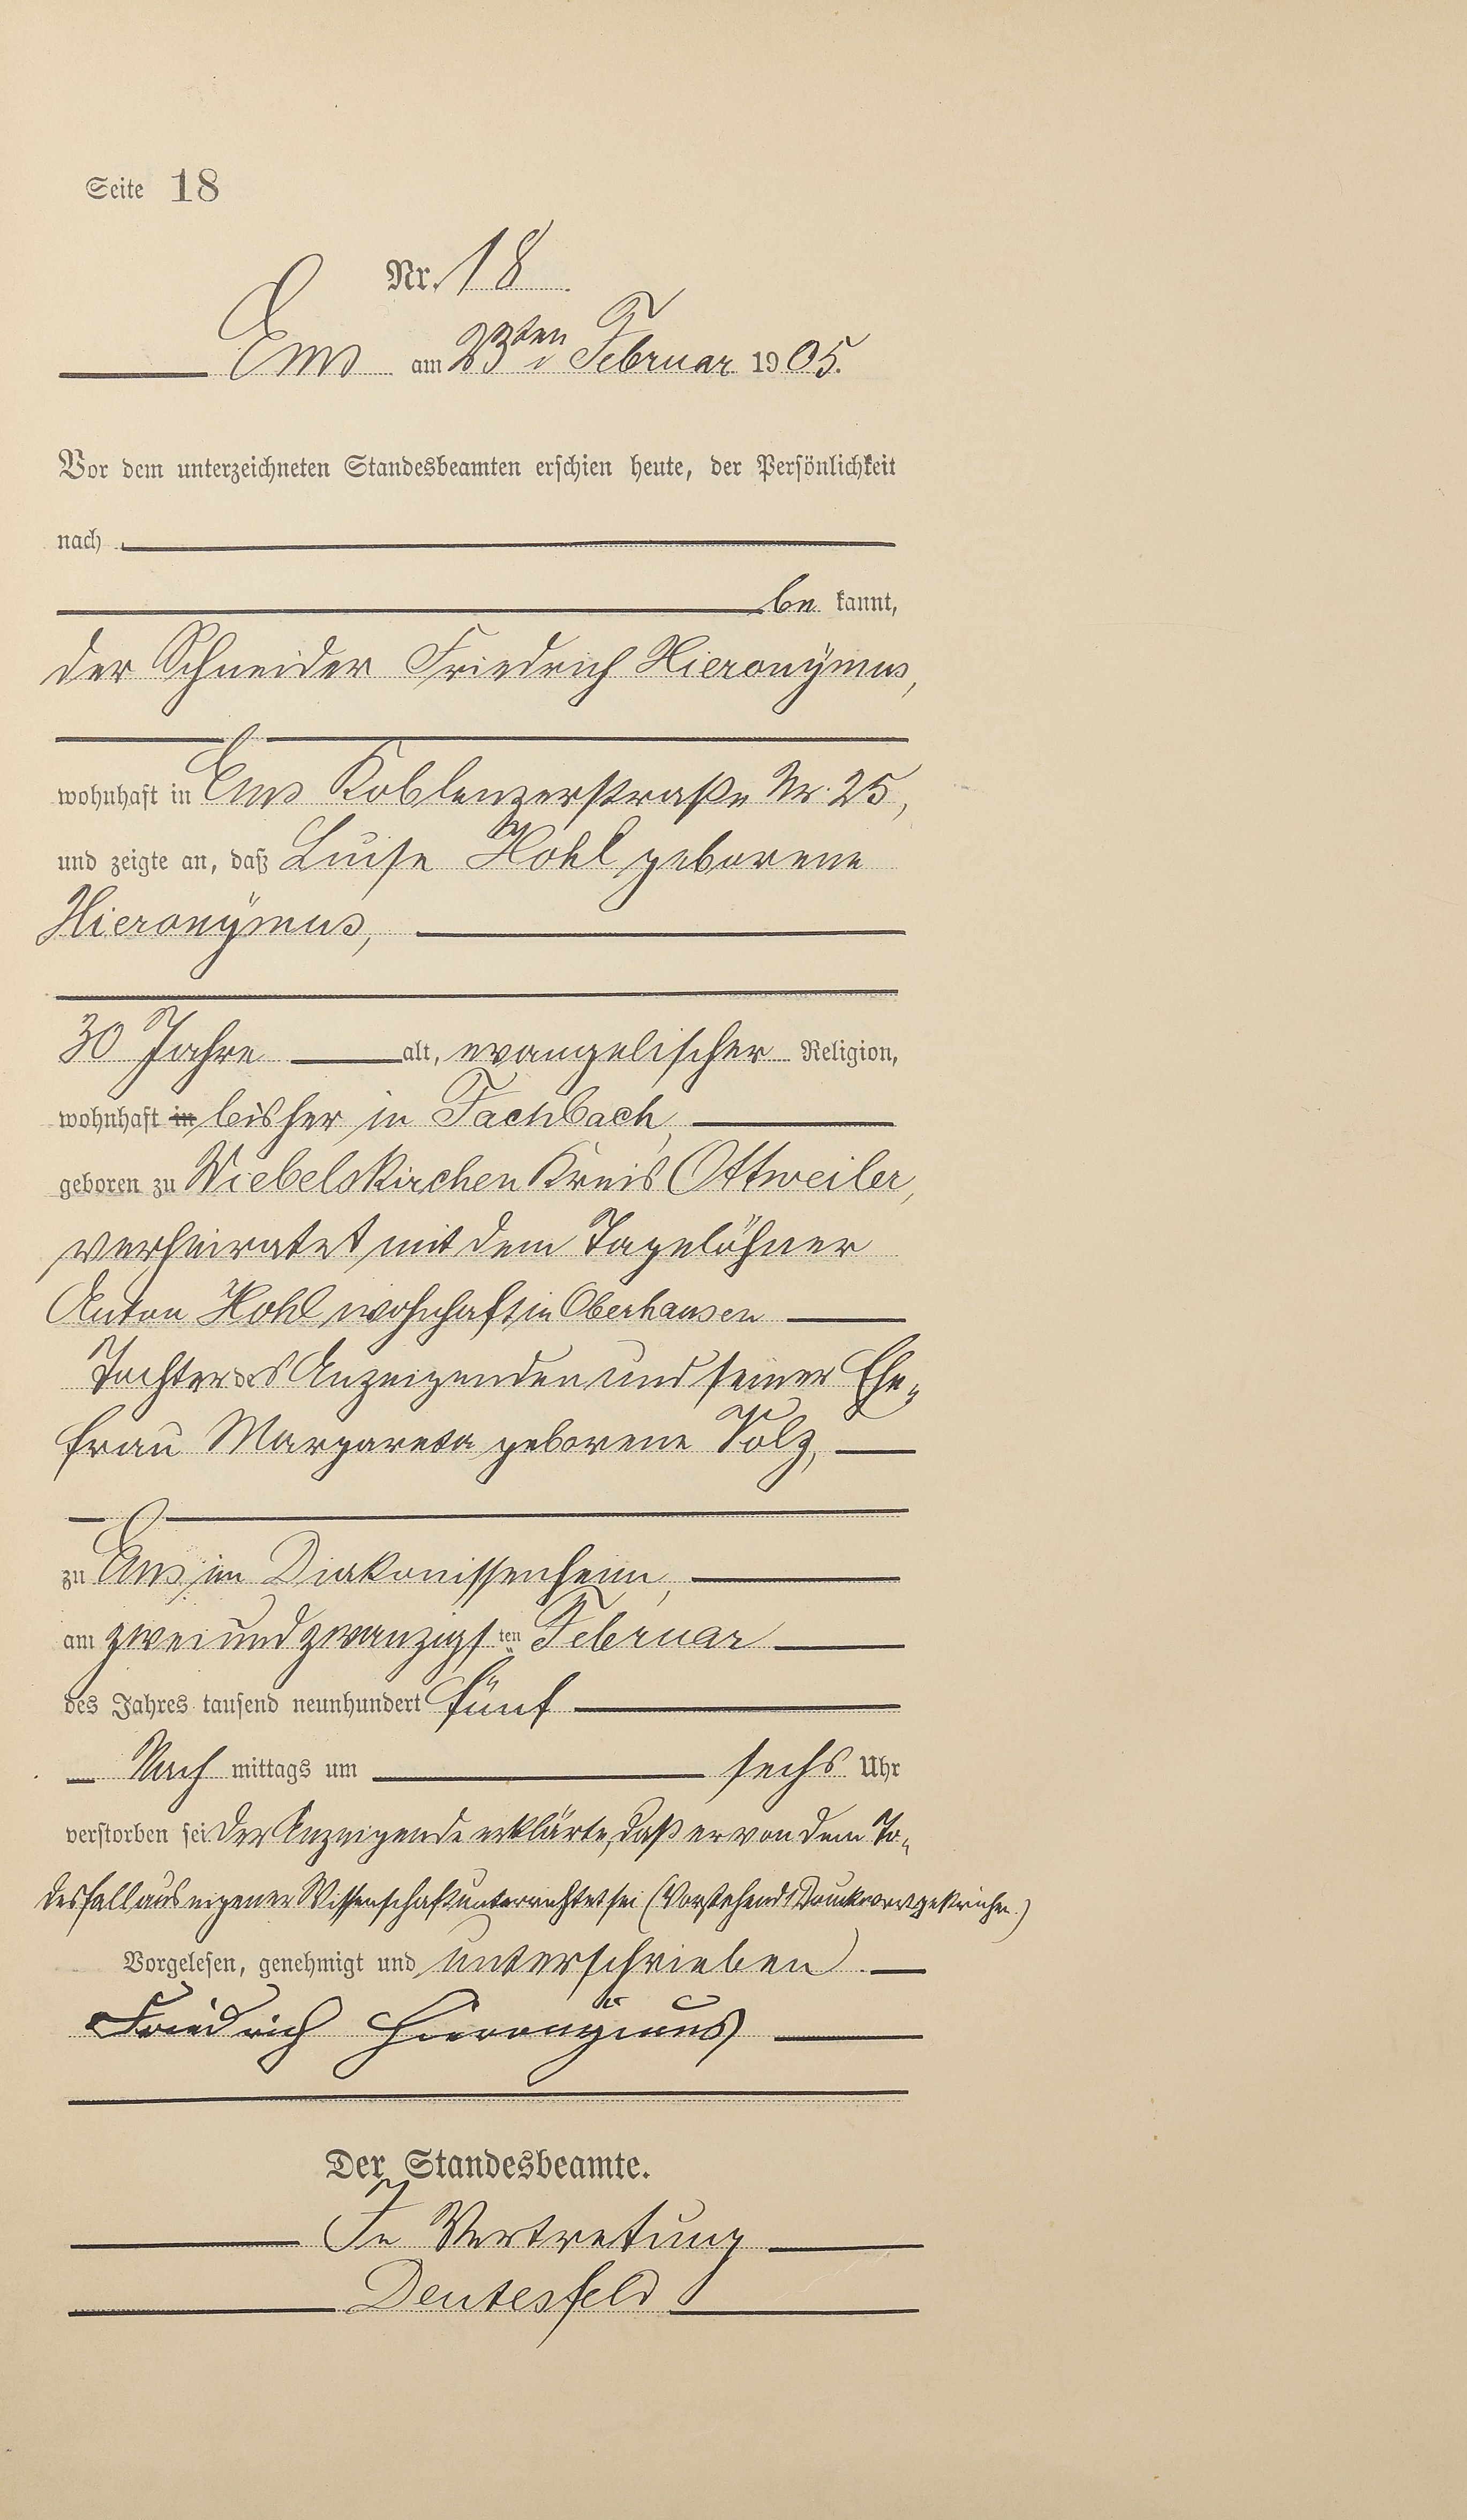 Seite 18
Nr. 18
Ems am 23ten Februar 1905.
Vor dem unterzeichneten Standesbeamten erschien heute, der Persönlichkeit
nach
be kannt,
der Schneider Friedrich Hieronÿmus,
wohnhaft in Ems Koblenzerstraße Nr. 25,
und zeigte an, daß Luise Hohl geborene
Hieronÿmus,
30 Jahre alt, evangelischer Religion,
wohnhaft in bisher in Fachbach,
geboren zu Wiebelskirchen Kreis Ottweiler,
verheiratet mit dem Tagelöhner
Anton Hohl wohnhaft in Oberhausen
Tochter des Anzeigenden und seiner Ehe„
frau Margareta geborene Volz,
zu Ems im Diakonissenheim,
am zwei und zwanzigsten Februar
des Jahres tausend neunhundert fünf
Nach mittags um sechs Uhr
verstorben sei. Der Anzeigende erklärte, daß er von dem To„
desfall aus eigener Wissenschaft unterrichtet sei (Vorstehend 1 Druckwort gestrichen.)
Vorgelesen, genehmigt und unterschrieben.
Friedrich Hieronÿmus
Der Standesbeamte.
In Vertretung
Deutesfeld